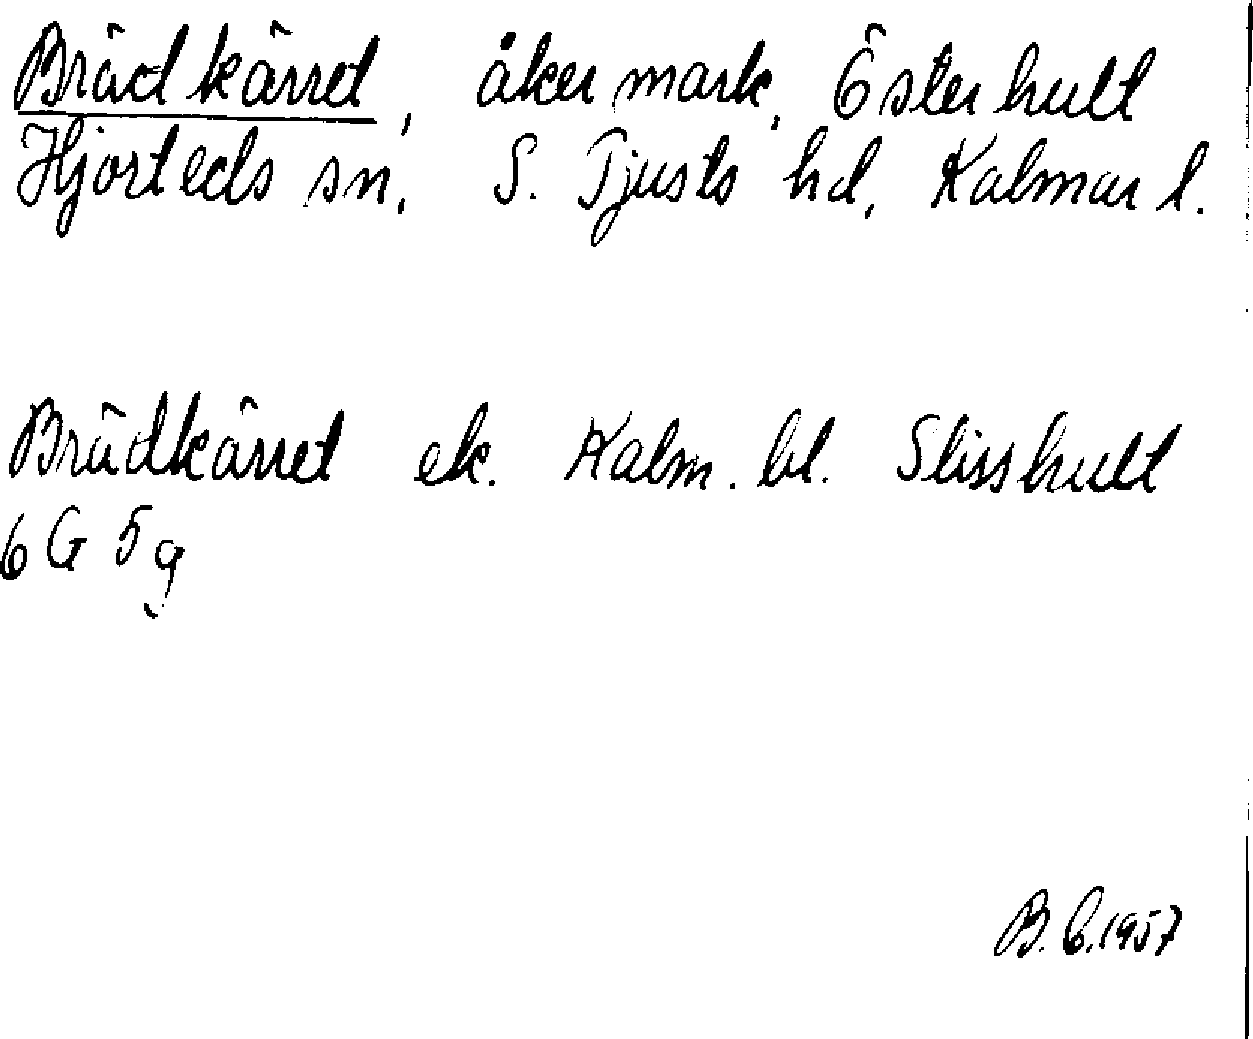 Brädkärret, åkermark, Österhult
Hjorteds sn, S. Tjusts hd, Kalmar l.
Brädkärret ek. Kalm. bl. Slisshult
6 G 5 g
B. C. 1957